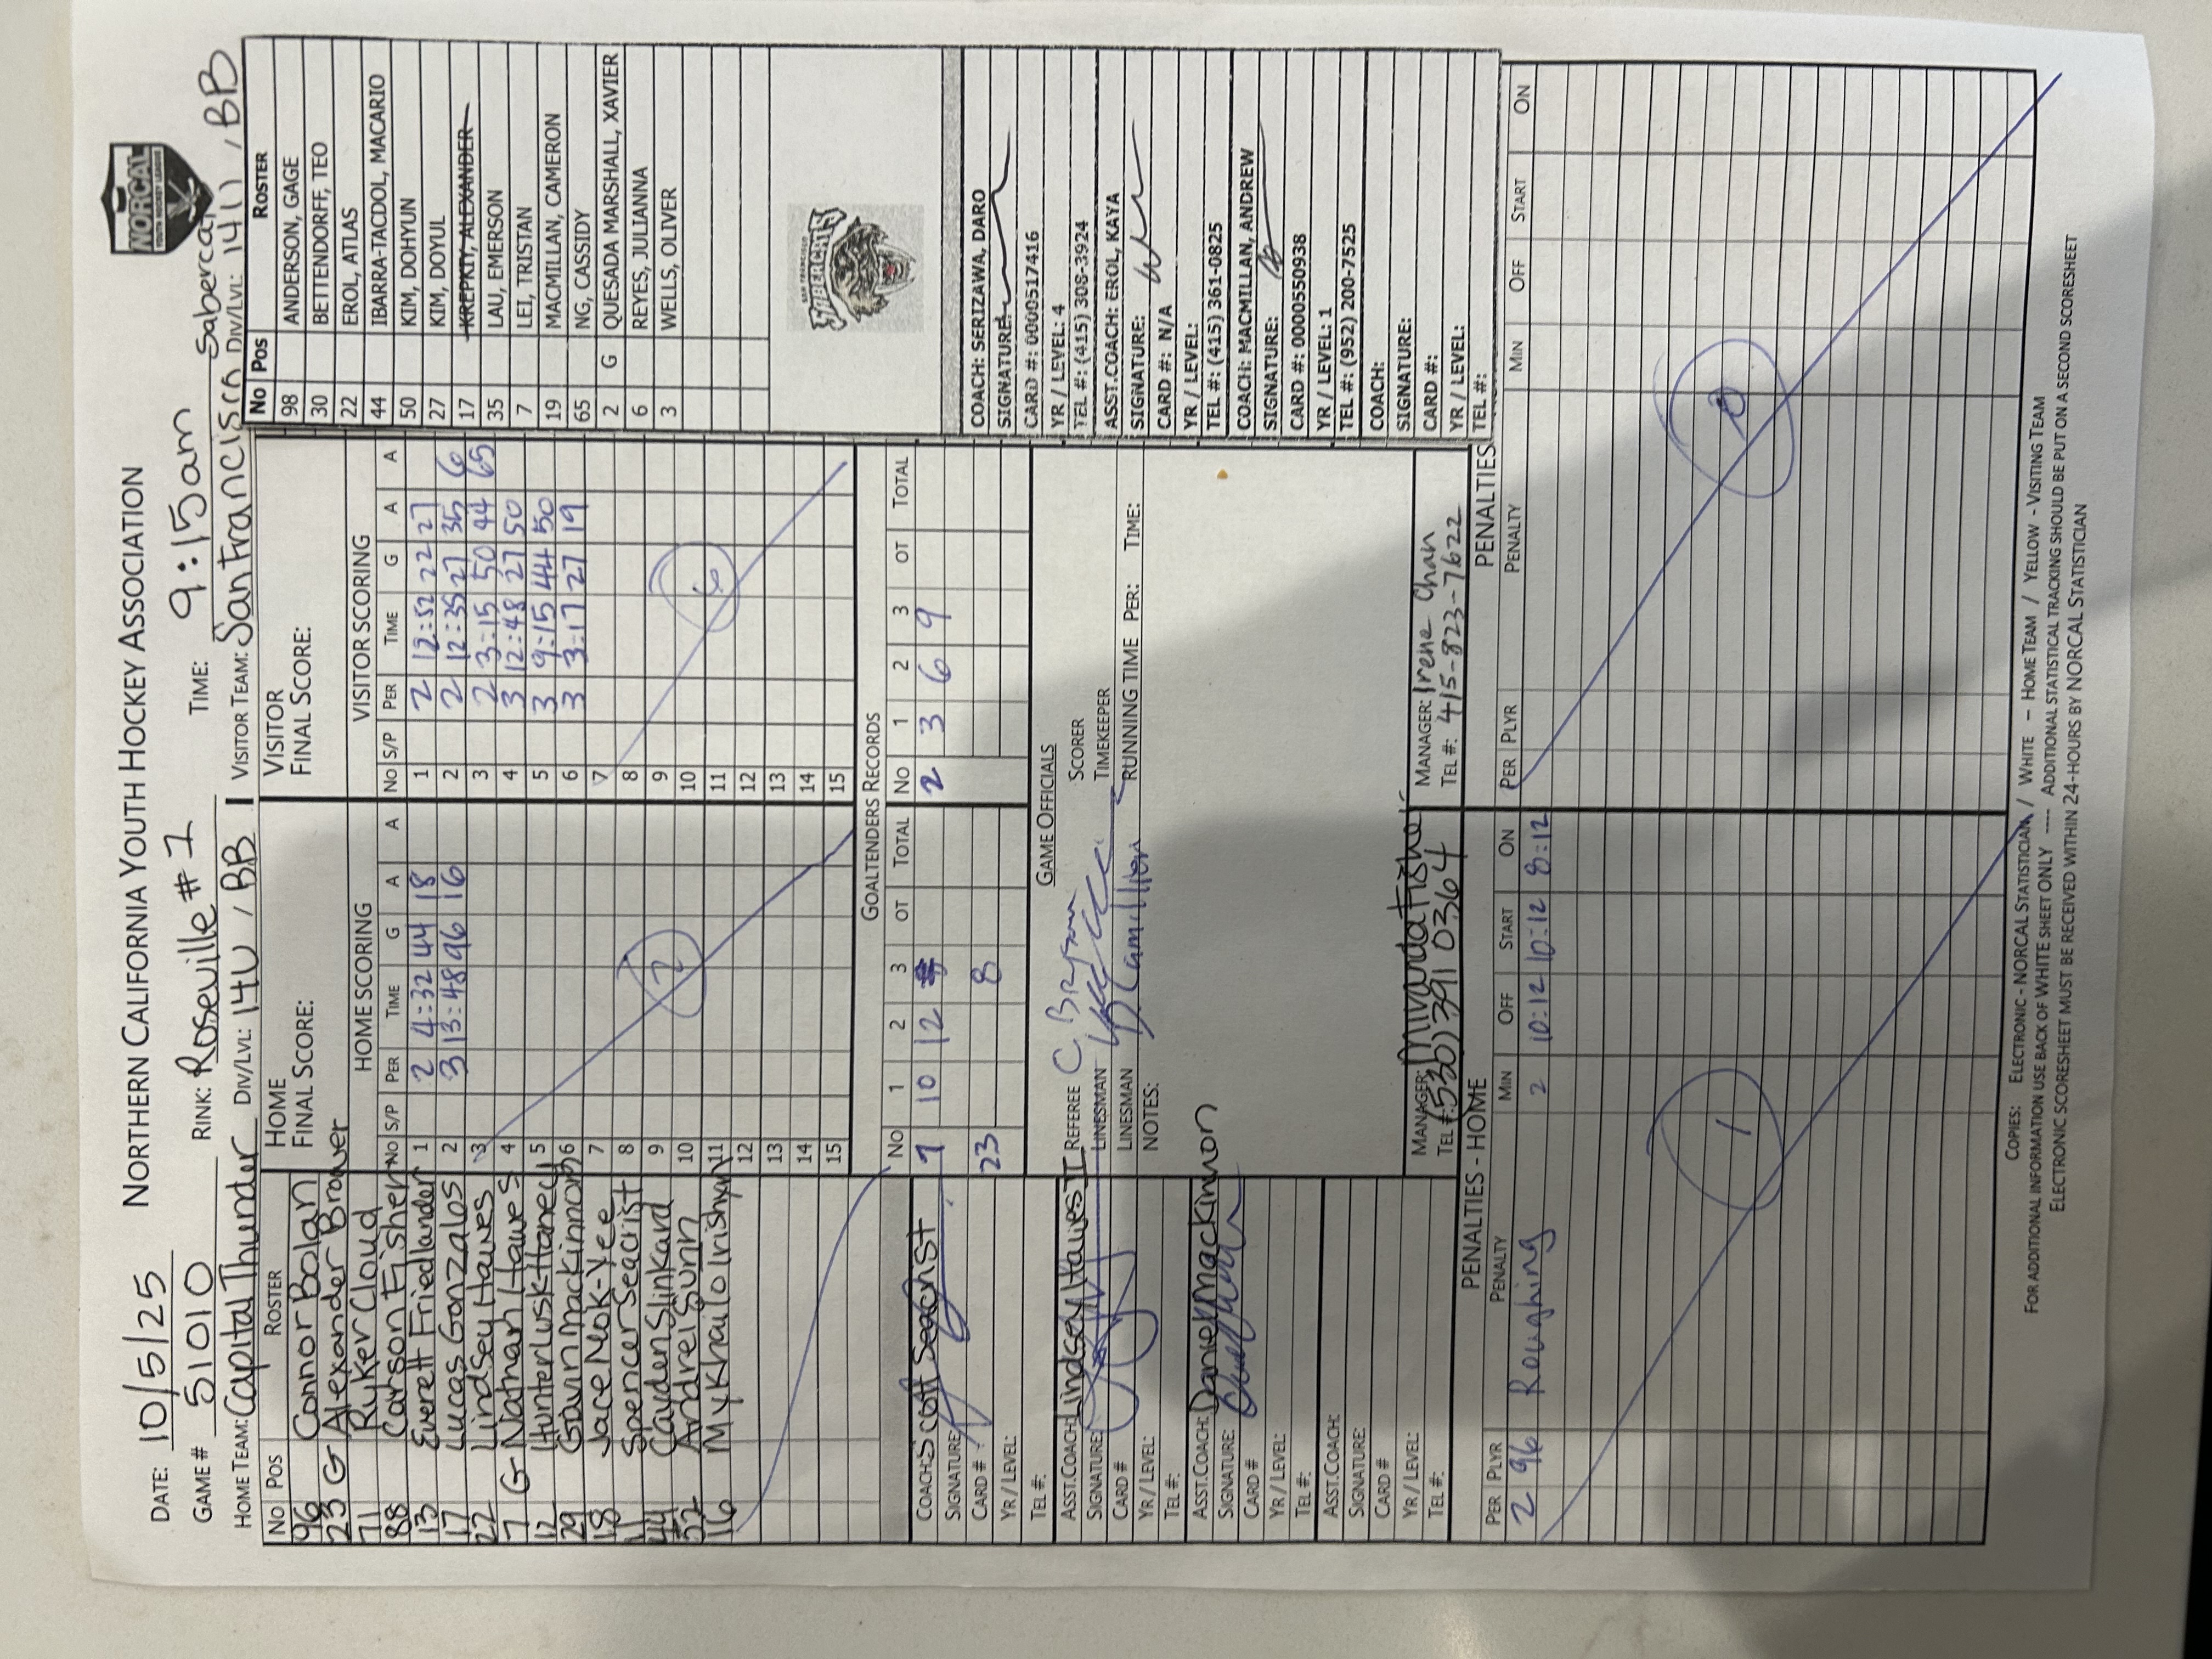 DATE: 10/5/25 NORTHERN CALIFORNIA YOUTH HOCKEY ASSOCIATION
NORCAL
YOUTH HOCKEY LEAGUE
GAME # 51010 RINK: Roseville #1 TIME: 9:15am
HOME TEAM: Capital Thunder DIV/LVL: 14U / BB VISITOR TEAM: San Francisco Sabercats DIV/LVL: 14U / BB
NO POS ROSTER
96 Connor Bolan
23 G Alexander Brower
71 Ryker Cloud
88 Carson Fisher
13 Everett Friedlander
17 Lucas Gonzalos
22 Lindsey Hawes
7 G Nathan Hawes
12 Hunter Lusk-Haney
29 Gavin Mackinnon
18 Jace Mok-Yee
11 Spencer Seacrist
44 Cayden Slinkard
52 Andrei Sunn
16 Mykhailo Irishyn
HOME
FINAL SCORE:
HOME SCORING
NO S/P PER TIME G A A
1 2 4:32 44 18
2 3 13:48 96 16
3
4
5
6
7
8
9
10
11
12
13
14
15
2
VISITOR
FINAL SCORE:
VISITOR SCORING
NO S/P PER TIME G A A
1 2 12:52 22 27
2 2 12:35 27 35 6
3 2 3:15 50 44 65
4 3 12:48 27 50
5 3 9:15 44 50
6 3 3:17 27 19
7
8
9
10
11
12
13
14
15
6
No Pos ROSTER
98 ANDERSON, GAGE
30 BETTENDORFF, TEO
22 EROL, ATLAS
44 IBARRA-TACDOL, MACARIO
50 KIM, DOHYUN
27 KIM, DOYUL
17 KREPKIY, ALEXANDER
35 LAU, EMERSON
7 LEI, TRISTAN
19 MACMILLAN, CAMERON
65 NG, CASSIDY
2 G QUESADA MARSHALL, XAVIER
6 REYES, JULIANNA
3 WELLS, OLIVER
SAN FRANCISCO
SABERCATS
GOALTENDERS RECORDS
NO 1 2 3 OT TOTAL NO 1 2 3 OT TOTAL
7 10 12 2 3 6 9
23 8
COACH: Scott Seacrist
SIGNATURE:
CARD #:
YR / LEVEL:
TEL #:
ASST.COACH: Lindsey Hawes
SIGNATURE:
CARD #
YR / LEVEL:
TEL #:
ASST.COACH: Daniel Mackinnon
SIGNATURE:
CARD #
YR / LEVEL:
TEL #:
ASST.COACH:
SIGNATURE:
CARD #
YR / LEVEL:
TEL #:
GAME OFFICIALS
REFEREE SCORER
LINESMAN TIMEKEEPER
LINESMAN RUNNING TIME PER: TIME:
NOTES:
MANAGER: Miranda Fisher
TEL #: (530) 391 0364
MANAGER: Irene Chan
TEL #: 415-823-7622
COACH: SERIZAWA, DARO
SIGNATURE:
CARD #: 0000517416
YR / LEVEL: 4
TEL #: (415) 308-3924
ASST.COACH: EROL, KAYA
SIGNATURE:
CARD #: N/A
YR / LEVEL:
TEL #: (415) 361-0825
COACH: MACMILLAN, ANDREW
SIGNATURE:
CARD #: 0000550938
YR / LEVEL: 1
TEL #: (952) 200-7525
COACH:
SIGNATURE:
CARD #:
YR / LEVEL:
TEL #:
PENALTIES - HOME
PER PLYR PENALTY MIN OFF START ON
2 96 Roughing 2 10:12 10:12 8:12
1
PENALTIES
PER PLYR PENALTY MIN OFF START ON
0
COPIES: ELECTRONIC - NORCAL STATISTICIAN / WHITE - HOME TEAM / YELLOW - VISITING TEAM
FOR ADDITIONAL INFORMATION USE BACK OF WHITE SHEET ONLY ---- ADDITIONAL STATISTICAL TRACKING SHOULD BE PUT ON A SECOND SCORESHEET
ELECTRONIC SCORESHEET MUST BE RECEIVED WITHIN 24-HOURS BY NORCAL STATISTICIAN